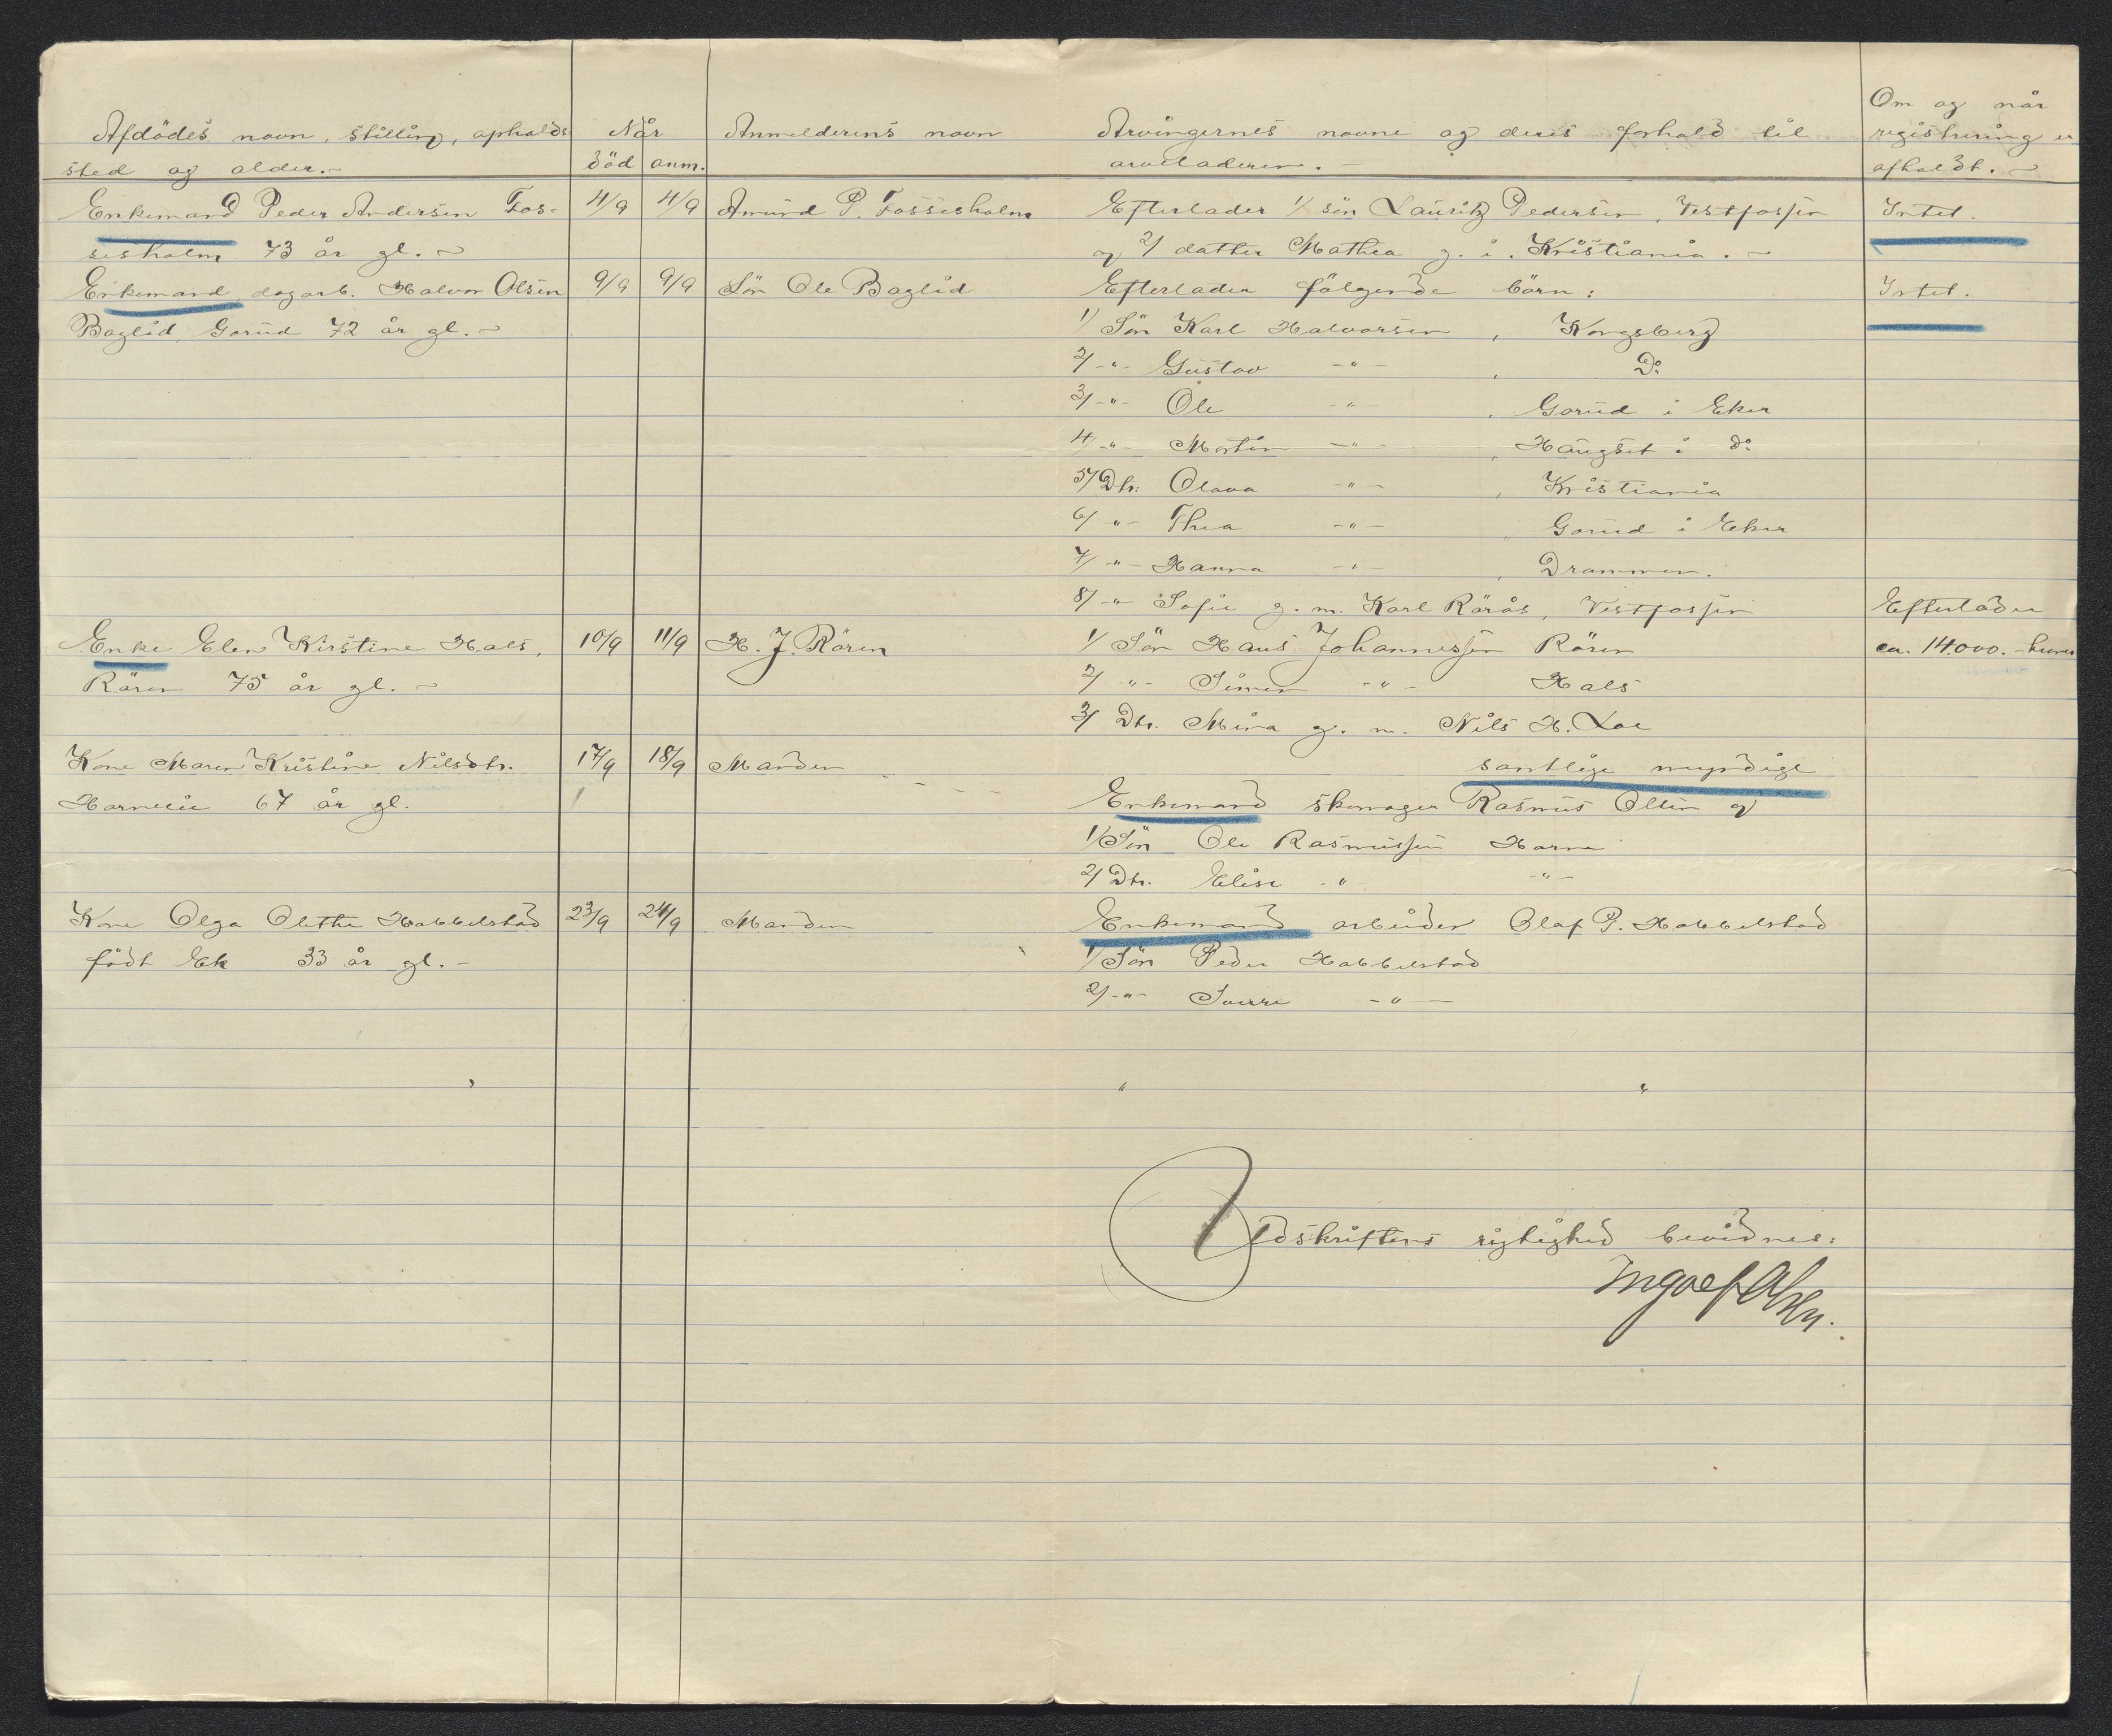 Afdödes navn, stilling, opholds
sted og alder.-
Når
död anm.
Anmelderens navn
Arvingernes navne og deres forhold til
arveladeren.-
Om og når
registrering er
afholdt.-
Enkemand Peder Andersen Fos-
sesholm 73 år gl.-
4/9 4/9
Amund P. Fossesholm
Efterlader 1/ sön Lauritz Pedersen, Vestfossen
og 2/ datter Mathea g. i. Kristiania.-
Intet.
Enkemand dagarb. Halvor Olsen
Baglid, Gorud 72 år gl.-
9/9 9/9
Sön Ole Baglid
Efterlader fölgende börn:
Intet.
1/ Sön Karl Halvorsen, Kongsberg
2/ -"- Gustav -"- , Do
3/ -"- Ole -"- , Gorud i Eker
4/ -"- Martin -"- , Haugset i do
5/ Dtr: Olava -"- , Kristiania
6/ -"- Thea -"- , Gorud i Eker
7/ -"- Hanna -"- , Drammen.
8/ -"- Sofie g. m. Karl Rörås, Vestfossen
Enke Elen Kirstine Hals,
Rören 75 år gl.-
10/9 11/9
H. J. Rören
1/ Sön Hans Johannessen Rören
2/ -"- Simen -"- Hals
3/ Dtr. Mina g. m. Nils H. Loe
samtlige myndige
Efterlader
ca. 14.000.- kroner
Kone Maren Kristine Nilsdtr.
Harneeie 67 år gl.
17/9 18/9
Manden
Enkemand skomager Rasmus Olsen og
1/ Sön Ole Rasmussen Harne
2/ Dtr. Elise -"- -"-
Kone Olga Olethe Habbelstad
födt Ek 33 år gl.-
23/9 24/9
Manden
Enkemand arbeider Olaf P. Habbelstad
1/ Sön Peder Habbelstad
2/ -"- Sverre -"-
" "
Udskriftens rigtighed bevidnes:
Ingolf Olsen.